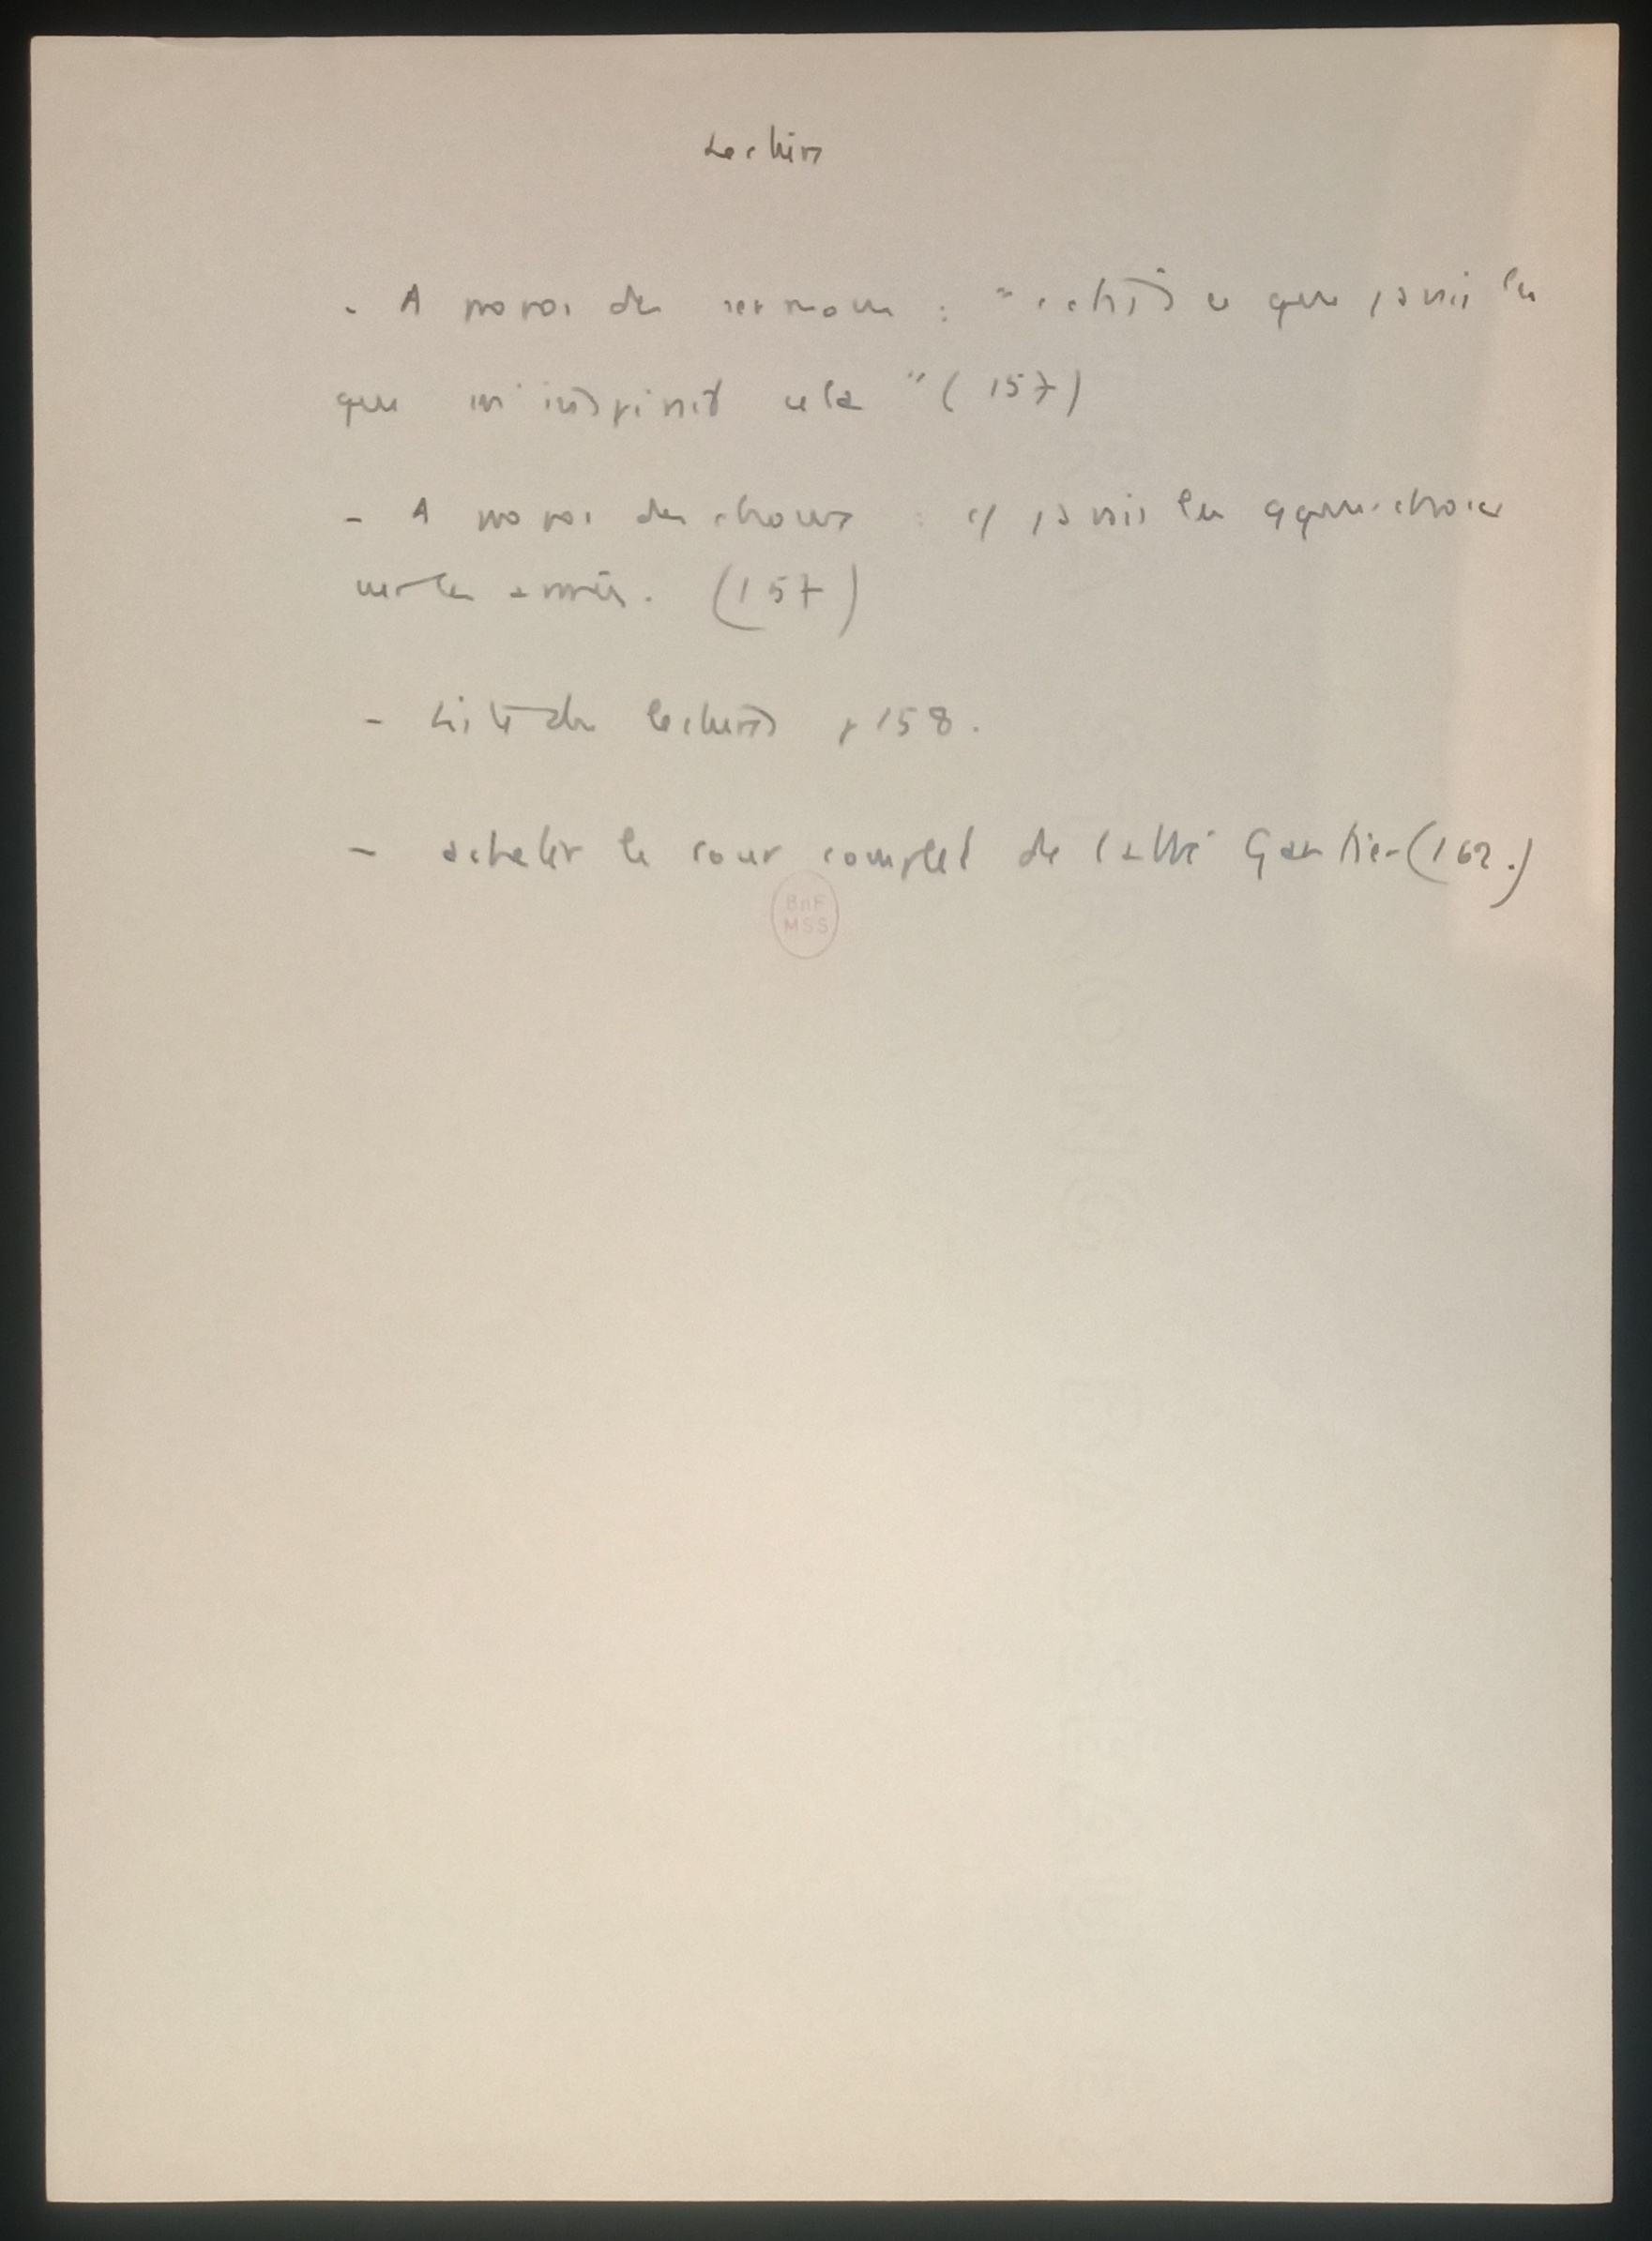 Lectures
- A propos des sermons : " c'était ce que j'avais lu
que m'inspirait cela " (157)
- A propos des chouans : j'avais lu quelque chose
sur les années. (157)
- Liste des lectures p 158.
- acheter le cour complet de l'abbé Gaultier (162.)
BnF
MSS